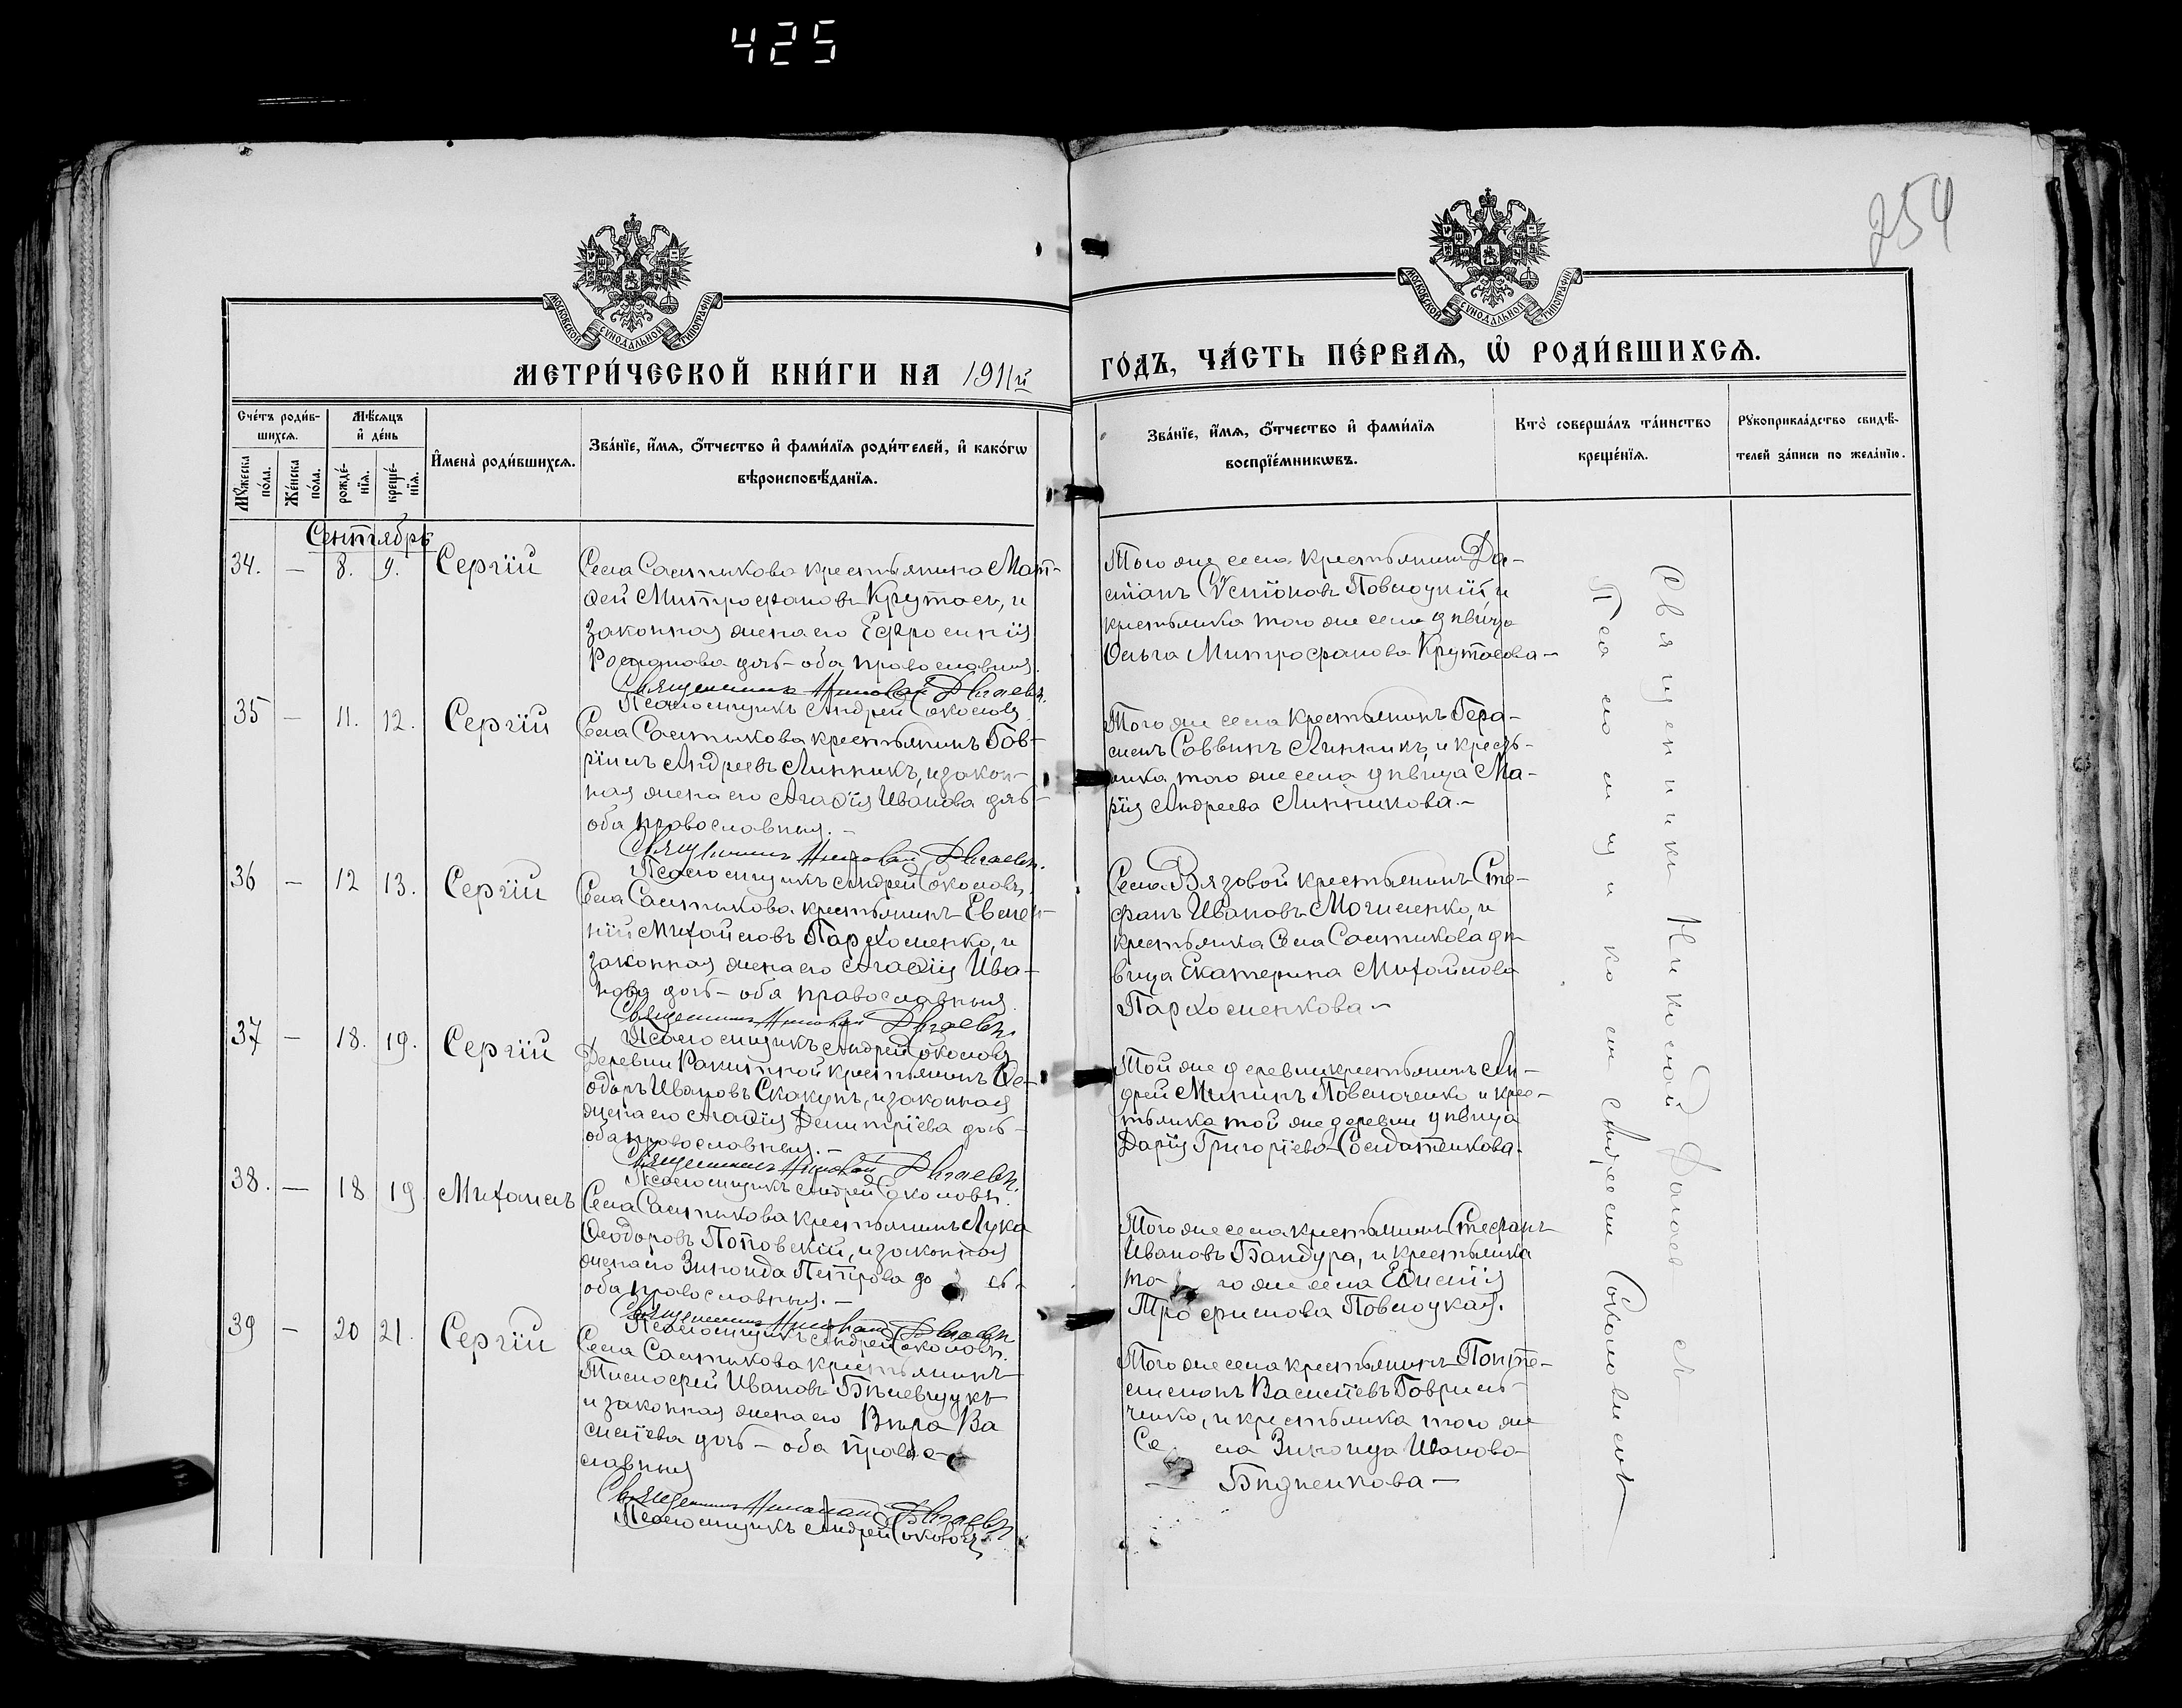 425
254
МОСКОВСКОЙ СѴНОДАЛЬНОЙ ТИПОГРАФІИ
МОСКОВСКОЙ СѴНОДАЛЬНОЙ ТИПОГРАФІИ
МЕТРИ́ЧЕСКОЙ КНИ́ГИ НА 1911й
ГО́ДЪ, ЧА́СТЬ ПЕ́РВАѦ, Ѡ҆ РОДИ́ВШИХСѦ.
Сче́тъ роди́в-
шихсѧ.
Мѣ́сѧцъ
и҆ де́нь
Мꙋ́жеска
по́ла.
Же́нска
по́ла.
рожде́-
нїѧ.
креще́-
нїѧ.
И҆мена̀ роди́вшихсѧ.
Зва́нїе, и҆́мѧ, ѻ҆́тчество и҆ фами́лїѧ роди́телей, и҆ како́гѡ
вѣроисповѣ́данїѧ.
Зва́нїе, и҆́мѧ, ѻ҆́тчество и҆ фами́лїѧ
воспрїе́мникѡвъ.
Кто̀ соверша́лъ та́инство
креще́нїѧ.
Рꙋкоприкла́дство свидѣ́-
телей за́писи по жела́нїю.
Сентябрь
34. — 8. 9. Сергій
Села Салтыкова крестьянина Мат-
ѳей Митрофановъ Крутась, и
законная жена его Ефросинія
Романова дочь – оба православныя.
Священникъ Николай
Псаломщикъ Андрей Соколовъ
Того же села крестьянин Да-
міанъ Устіновъ Повлоцкій и
крестьянка того же села дѣвица
Ольга Митрофанова Крутасова –
35 — 11. 12. Сергій
Села Салтыкова крестьянинъ Гав-
ріилъ Андреевъ Линникъ, и закон-
ная жена его Агаѳія Иванова дочь –
оба православныя. –
Священникъ Николай
Псаломщикъ Андрей Соколовъ
Того же села крестьянинъ Гера-
симъ Саввинъ Линникъ, и кресть-
янка того же села дѣвица Ма-
рія Андреева Линникова. –
36 — 12 13. Сергій
Села Салтыкова крестьянинъ Евме-
ній Михайловъ Пархоменко, и
законная жена его Агаѳія Ива-
нова дочь – оба православныя
Священникъ Николай
Псаломщикъ Андрей Соколовъ
Села Вязовой крестьянинъ Сте-
фанъ Ивановъ Могиленко, и
крестьянка села Салтыкова дѣ-
вица Екатерина Михайлова
Пархоменкова –
37 — 18. 19. Сергій
Деревни Ракитной крестьянинъ Ѳе-
одоръ Ивановъ Скакунъ, и законная
жена его Агаѳія Димитріева дочь –
оба православныя. –
Священникъ Николай
Псаломщикъ Андрей Соколовъ
Той же деревни крестьянинъ Ан-
дрей Мининъ Павлюченко и крес-
тьянка той же деревни дѣвица
Дарія Григоріева Солдатенкова.
38. — 18 19 Михаилъ
Села Салтыкова крестьянинъ Лука
Ѳеодоровъ Поповскій, и законная
жена его Зинаида Петрова дочь –
оба православныя. –
Священникъ Николай
Псаломщикъ Андрей Соколовъ.
Того же села крестьянинъ Стефанъ
Ивановъ Бандура, и крестьянка
того же села Евѳимія
Трофимова Повлоцкая.
39 — 20 21. Сергій
Села Салтыкова крестьянинъ
Тимофей Ивановъ
и законная жена его Вѣра Ва
силіева дочь – оба право-
славныя
Священникъ Николай
Псаломщикъ Андрей Соколовъ
Того же села крестьянинъ Панте-
лимонъ Василіевъ Гавриль-
ченко, и крестьянка того же
села Зинаида Иванова
Бидненкова –
Священники Николай
Псаломщиком Андреем Соколовимъ